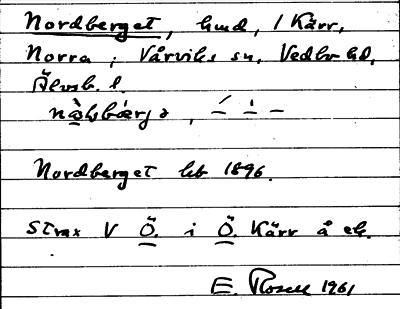 Nordberget, hmd, 1 Kärr,
Norra; Vårviks sn, Vedbo hd,
Älvsb. l.
Nordberget lub 1896.
Strax V Ö. i Ö. Kärr å ek.
E. Rosell 1961